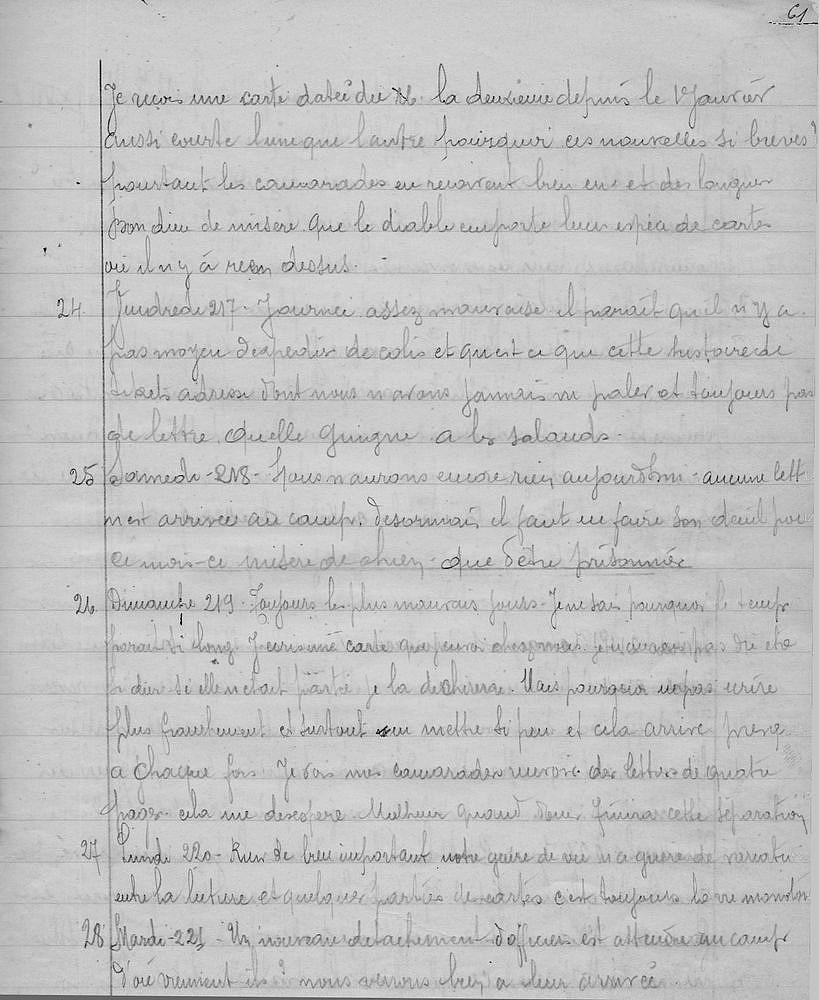 61
Je reçois une carte datée du 16. la deuxieme depuis le 1 Janvier
aussi courte lune que lautre pourquoi ces nouvelles si breves
pourtant les camarades en recoivent bien eux et des longues
bon dieu de misere. Que le diable emporte leur espéce de cartes
ou il n y à rien dessus.
24 Vendredi 217 - Journée assez mauvaise il parait qu il n y a
pas moyen dexpedier de colis et quest ce que cette histoire de
adresse dont nous n avons jamais vu parler et toujours pas
de lettre. quelle guigne a les salauds.
25 Samedi - 218 - Nous n aurons encore rien aujourdhui - aucune lett
n est arrivée au camp. desormais il faut en faire son deuil pou
ce mois-ci misère de chien - que d'être prisonnier
26 Dimanche 219 - Toujours les plus mauvais jours - Je ne sais pourquoi le temp
parait si long. J ecris une carte que jenvoi chez nous. je
si elle n etait partie je la dechirerai. Mais pourquoi ne pas ecrire
plus franchement et surtout en mettre si peu et cela arrive presq
a chaque fois Je vois mes camarades recevoir des lettres de quatre
pages. cela me desespere. Malheur quand donc finira cette séparation
27 Lundi 220 - Rien de bien important notre genre de vie n a guère de variati
entre la lecture et quelques parties de cartes c'est toujours la vie monoton
28 Mardi - 221 - Un nouveau detachement d'officiers est attendu au camp
D'où viennent ils ? nous verrons bien a leur arrivée.